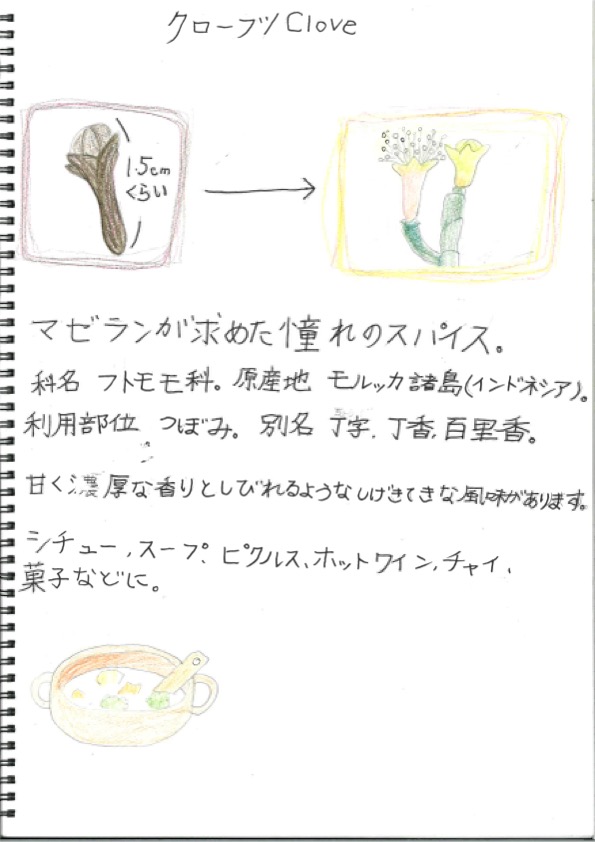 クローブ Clove
1.5cm
くらい
マゼランが求めた憧れのスパイス。
科名 フトモモ科。原産地 モルッカ諸島(インドネシア)。
利用部位 つぼみ。別名 丁字、丁香、百里香。
甘く濃厚な香りとしびれるようなしげきてきな風味があります。
シチュー、スープ、ピクルス、ホットワイン、チャイ、
菓子などに。